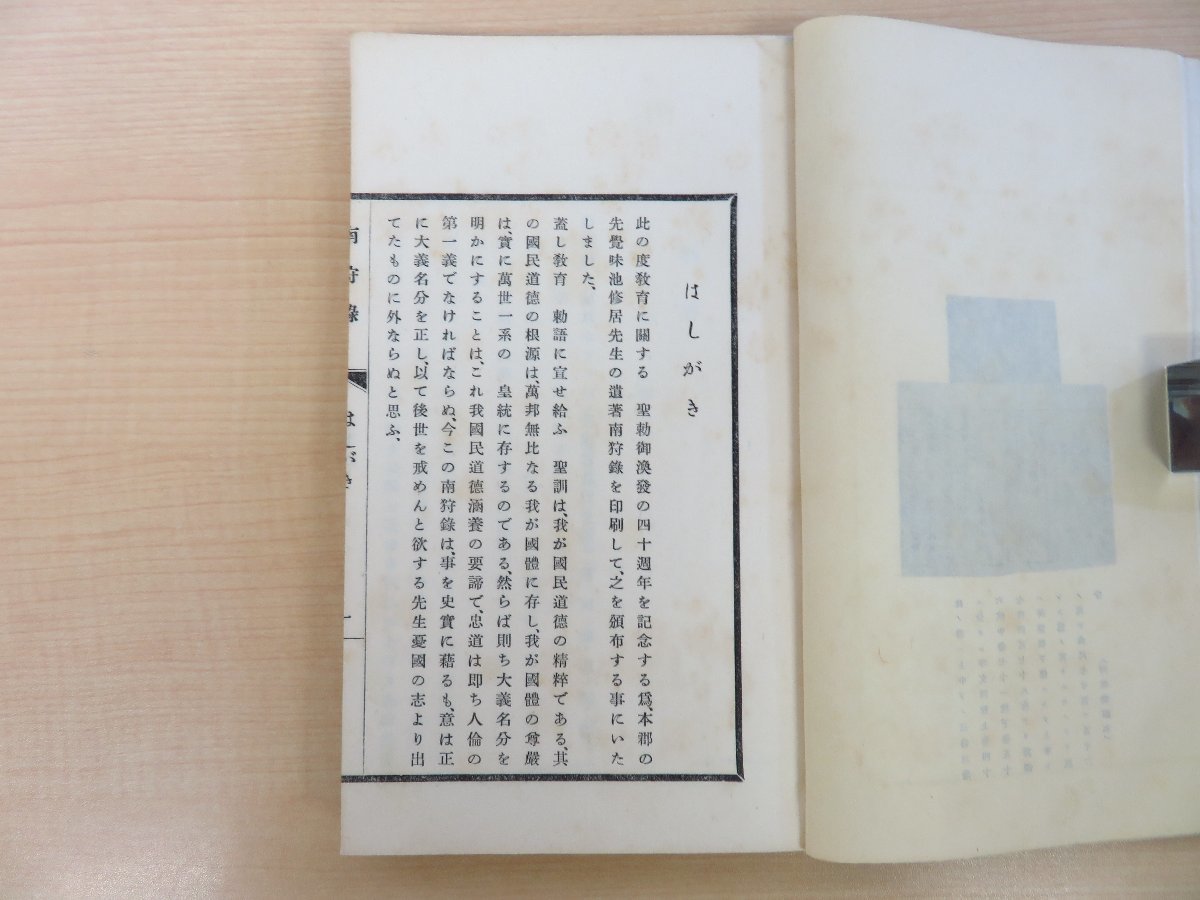 はしがき
此の度敎育に關する　聖勅御渙發の四十週年を記念する爲、本郡の
先覺味池修居先生の遺著南狩錄を印刷して、之を頒布する事にいた
しました、
蓋し敎育　勅語に宣せ給ふ　聖訓は、我が國民道德の精粹である、其
の國民道德の根源は、萬邦無比なる我が國體に存し、我が國體の尊嚴
は、實に萬世一系の　皇統に存するのである、然らば則ち大義名分を
明かにすることは、これ我國民道德涵養の要諦で、忠道は即ち人倫の
第一義でなければならぬ、今この南狩錄は、事を史實に藉るも、意は正
に大義名分を正し、以て後世を戒めんと欲する先生憂國の志より出
てたものに外ならぬと思ふ、
南狩錄　はしがき　一